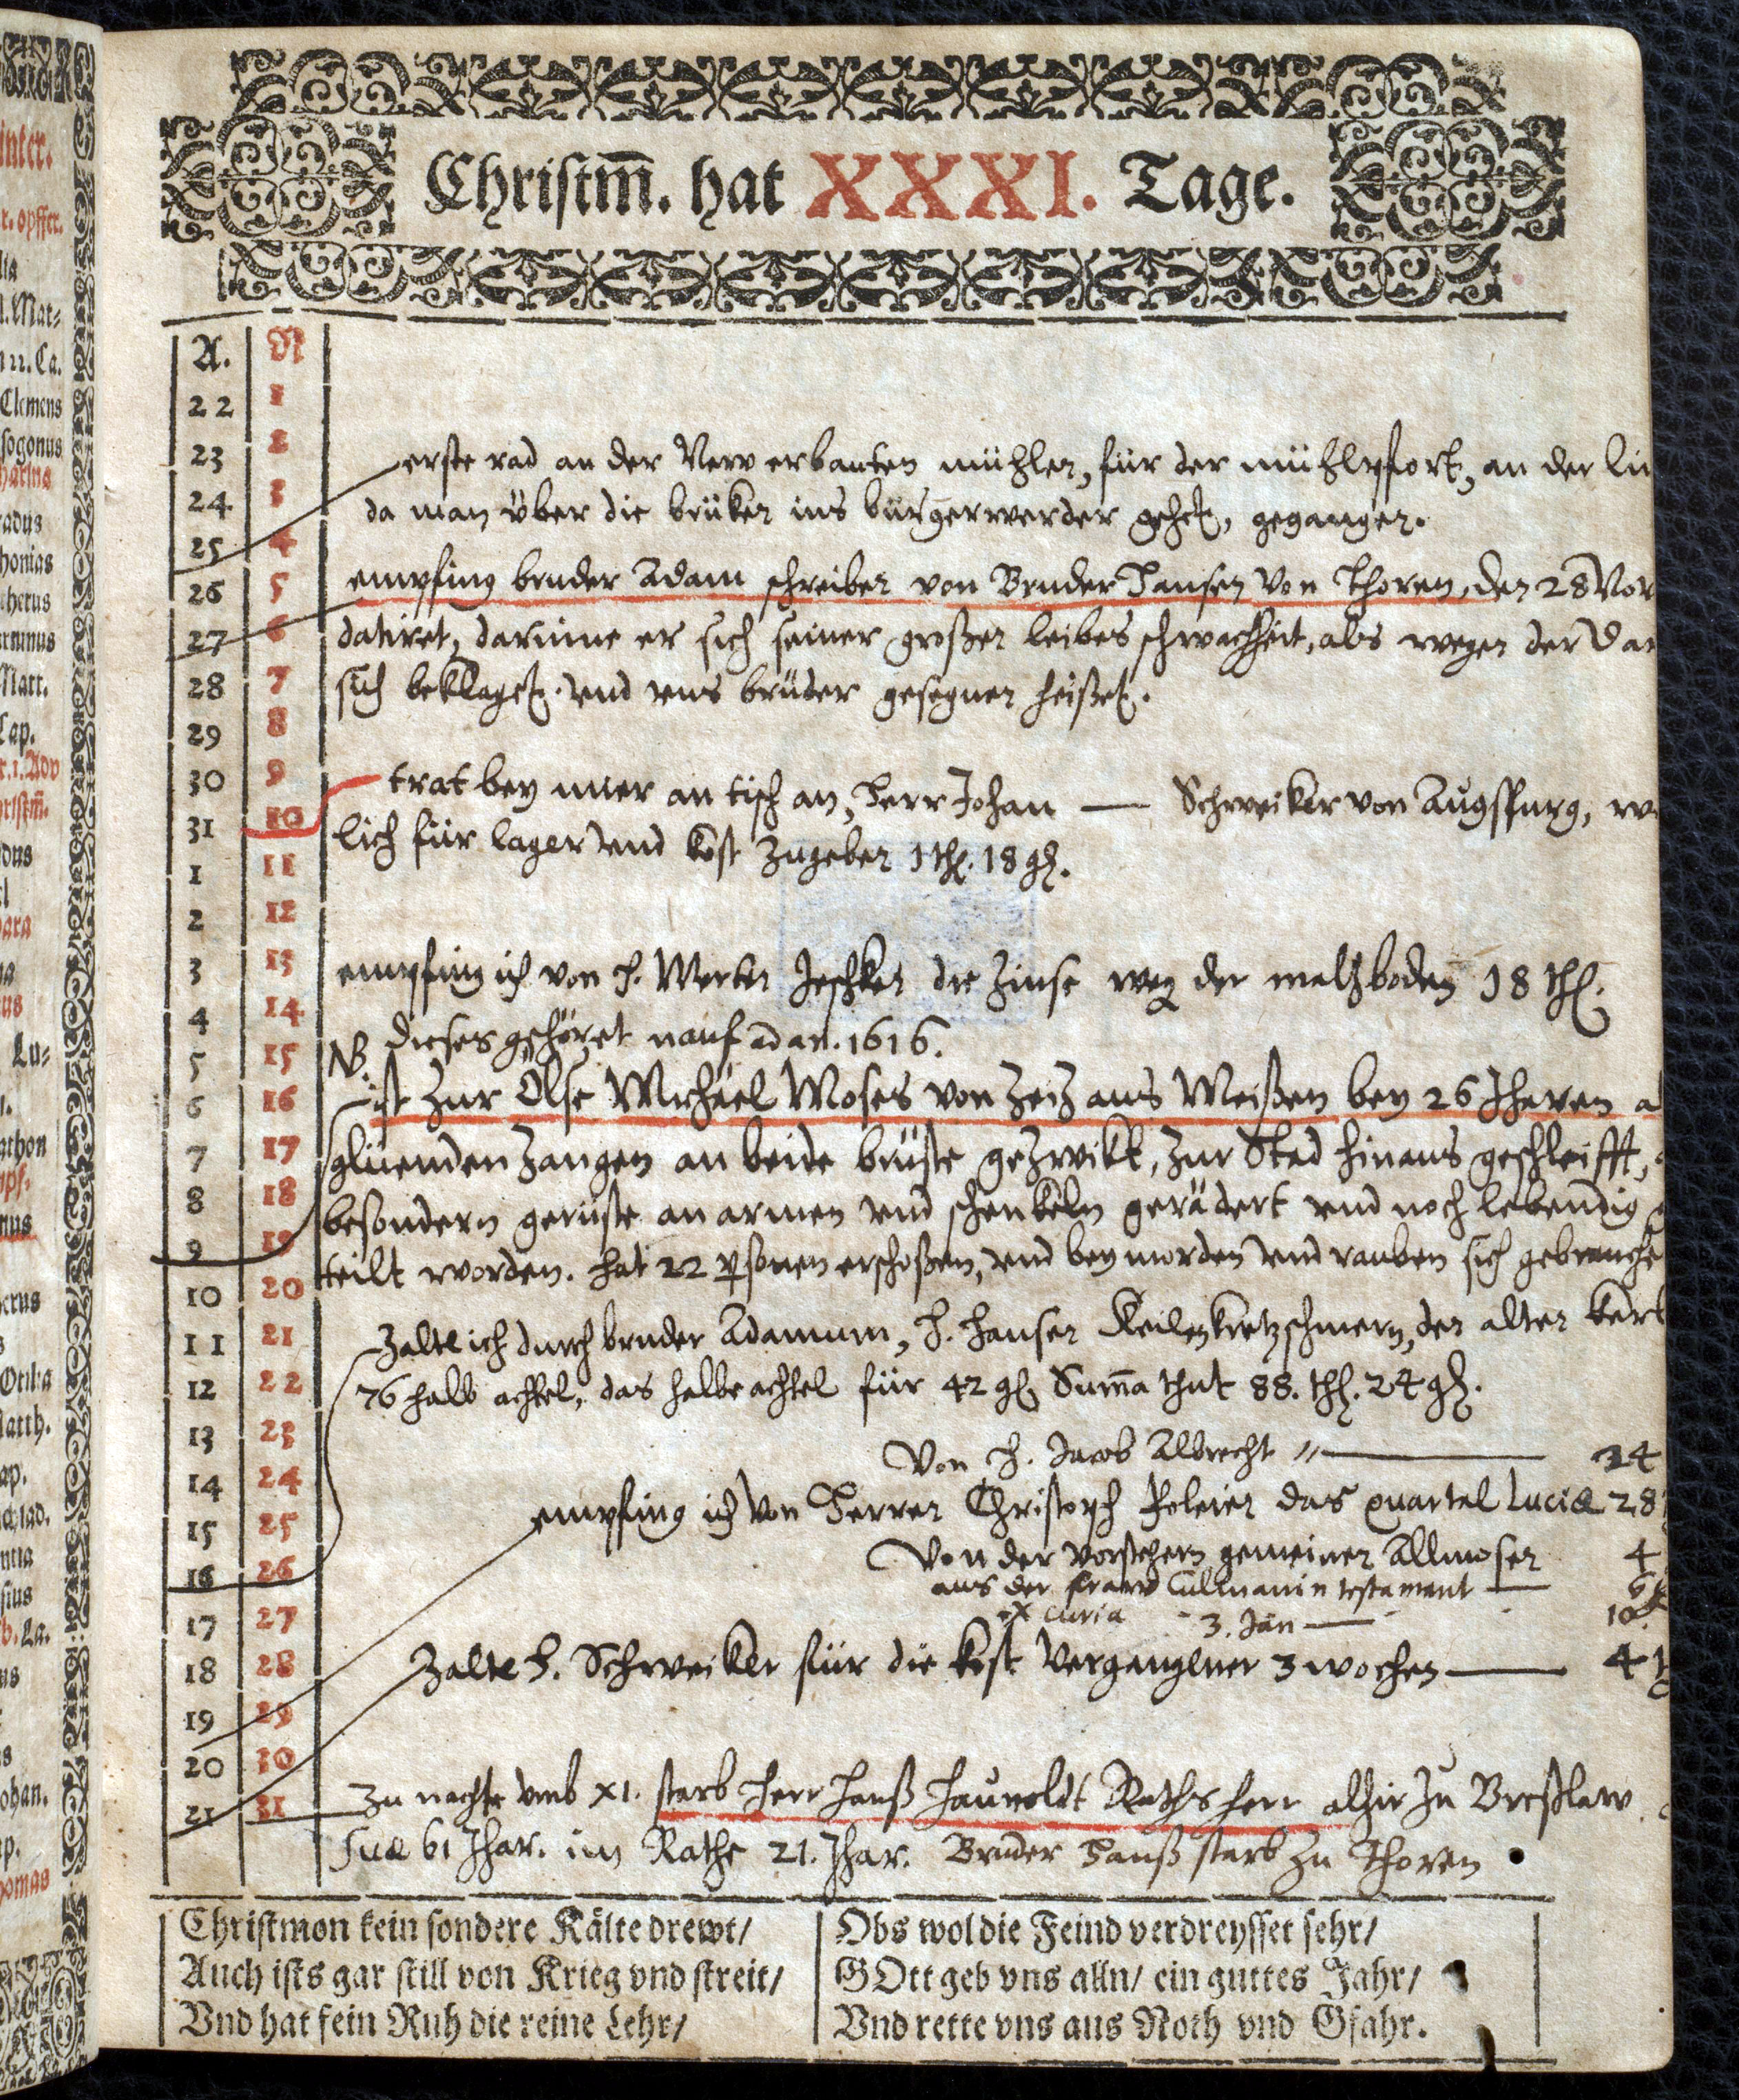 Christm̄. hat XXXI. Tage.
A. N
22 1
23 2
24 3
25 4
26 5
27 6
28 7
29 8
30 9
31 10
1 11
2 12
3 13
4 14
5 15
6 16
7 17
8 18
9 19
10 20
11 21
12 22
13 23
14 24
15 25
16 26
17 27
18 28
19 29
20 30
21 31
erste rad an der New erbauten mühlen, für der mühlpfort, an der
da man über die brüken ins bürgerwerder gehet, gegangen.
empfing bruder Adam schreiben von Bruder Hansen von Thoren, den 28 Nov
datiret, darinne er sich seiner großen leibes schwachheit, als wegen der
sich beklaget. und uns brüder gesegnen heißet.
trat bey mier an tisch an, Herr Johan — Schweiker von Augspurg,
lich für lager und kost zugeben 1 thl. 18 gl.
empfing ich von H. Merten Jeschken die Zinse weg der maltzboden 18 thl.
NB. dieses gehöret nauf ad an. 1616.
ist zur Ölse Michäel Moses von Zeiz aus Meißen bey 26 Jharen
glüenden Zangen an beide brüste gezwikt, zur Stad hinaus geschleifft,
besondern gerüste an armen und schenkeln gerädert und noch lebendig
teilt worden. hat 22 personen erschoßen, und bey morden und rauben sich gebrauche
Zalte ich durch bruder Adamum, H. Hansen Keilenkretzschmern, den alten
76 halb achtel, das halbe achtel für 42 gl Suma thut 88. thl. 24 gl.
Von H. Jacob Albrecht — 24
empfing ich von Herren Christoph Poleier das quartal Luciæ 28
Von den vorstehern gemeiner Allmosen 4
aus der fraw Cullmanin testament — 6
ex curia 3. Jan — 10
Zalte H. Schweiker für die kost vergangener 3 wochen — 4
Zu nachte umb XI. starb Herr Hanß Haunoldt Rathsherr alhir zu Breßlaw.
suæ 61 Jhar. im Rathe 21. Jhar. Bruder Hanß starb zu Thoren
Christmon kein sondere Kälte drewt/
Auch ists gar still von Krieg vnd streit/
Vnd hat fein Ruh die reine Lehr/
Obs wol die Feind verdreysset sehr/
GOtt geb vns alln/ ein guttes Jahr/
Vnd rette vns aus Noth vnd Gfahr.